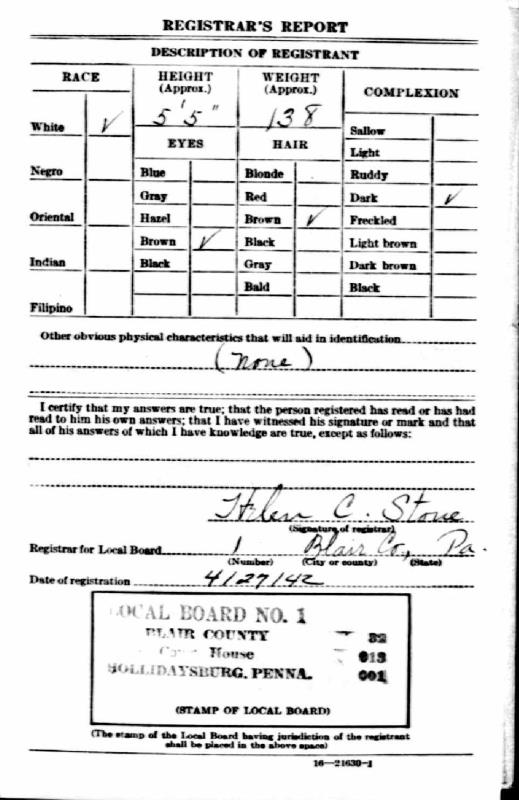 REGISTRAR'S REPORT
DESCRIPTION OF REGISTRANT
RACE HEIGHT (Approx.) WEIGHT (Approx.) COMPLEXION
5'5" 138
White ✓ Sallow
EYES HAIR Light
Negro Blue Blonde Ruddy
Gray Red Dark ✓
Oriental Hazel Brown ✓ Freckled
Brown ✓ Black Light brown
Indian Black Gray Dark brown
Bald Black
Filipino
Other obvious physical characteristics that will aid in identification
(none)
I certify that my answers are true; that the person registered has read or has had
read to him his own answers; that I have witnessed his signature or mark and that
all of his answers of which I have knowledge are true, except as follows:
Helen C. Stone
(Signature of registrar)
Registrar for Local Board 1 Blair Co., Pa.
(Number) (City or county) (State)
Date of registration 4/27/42
LOCAL BOARD NO. 1
BLAIR COUNTY 32
House 013
HOLLIDAYSBURG, PENNA. 001
(STAMP OF LOCAL BOARD)
(The stamp of the Local Board having jurisdiction of the registrant
shall be placed in the above space)
16—21630-1